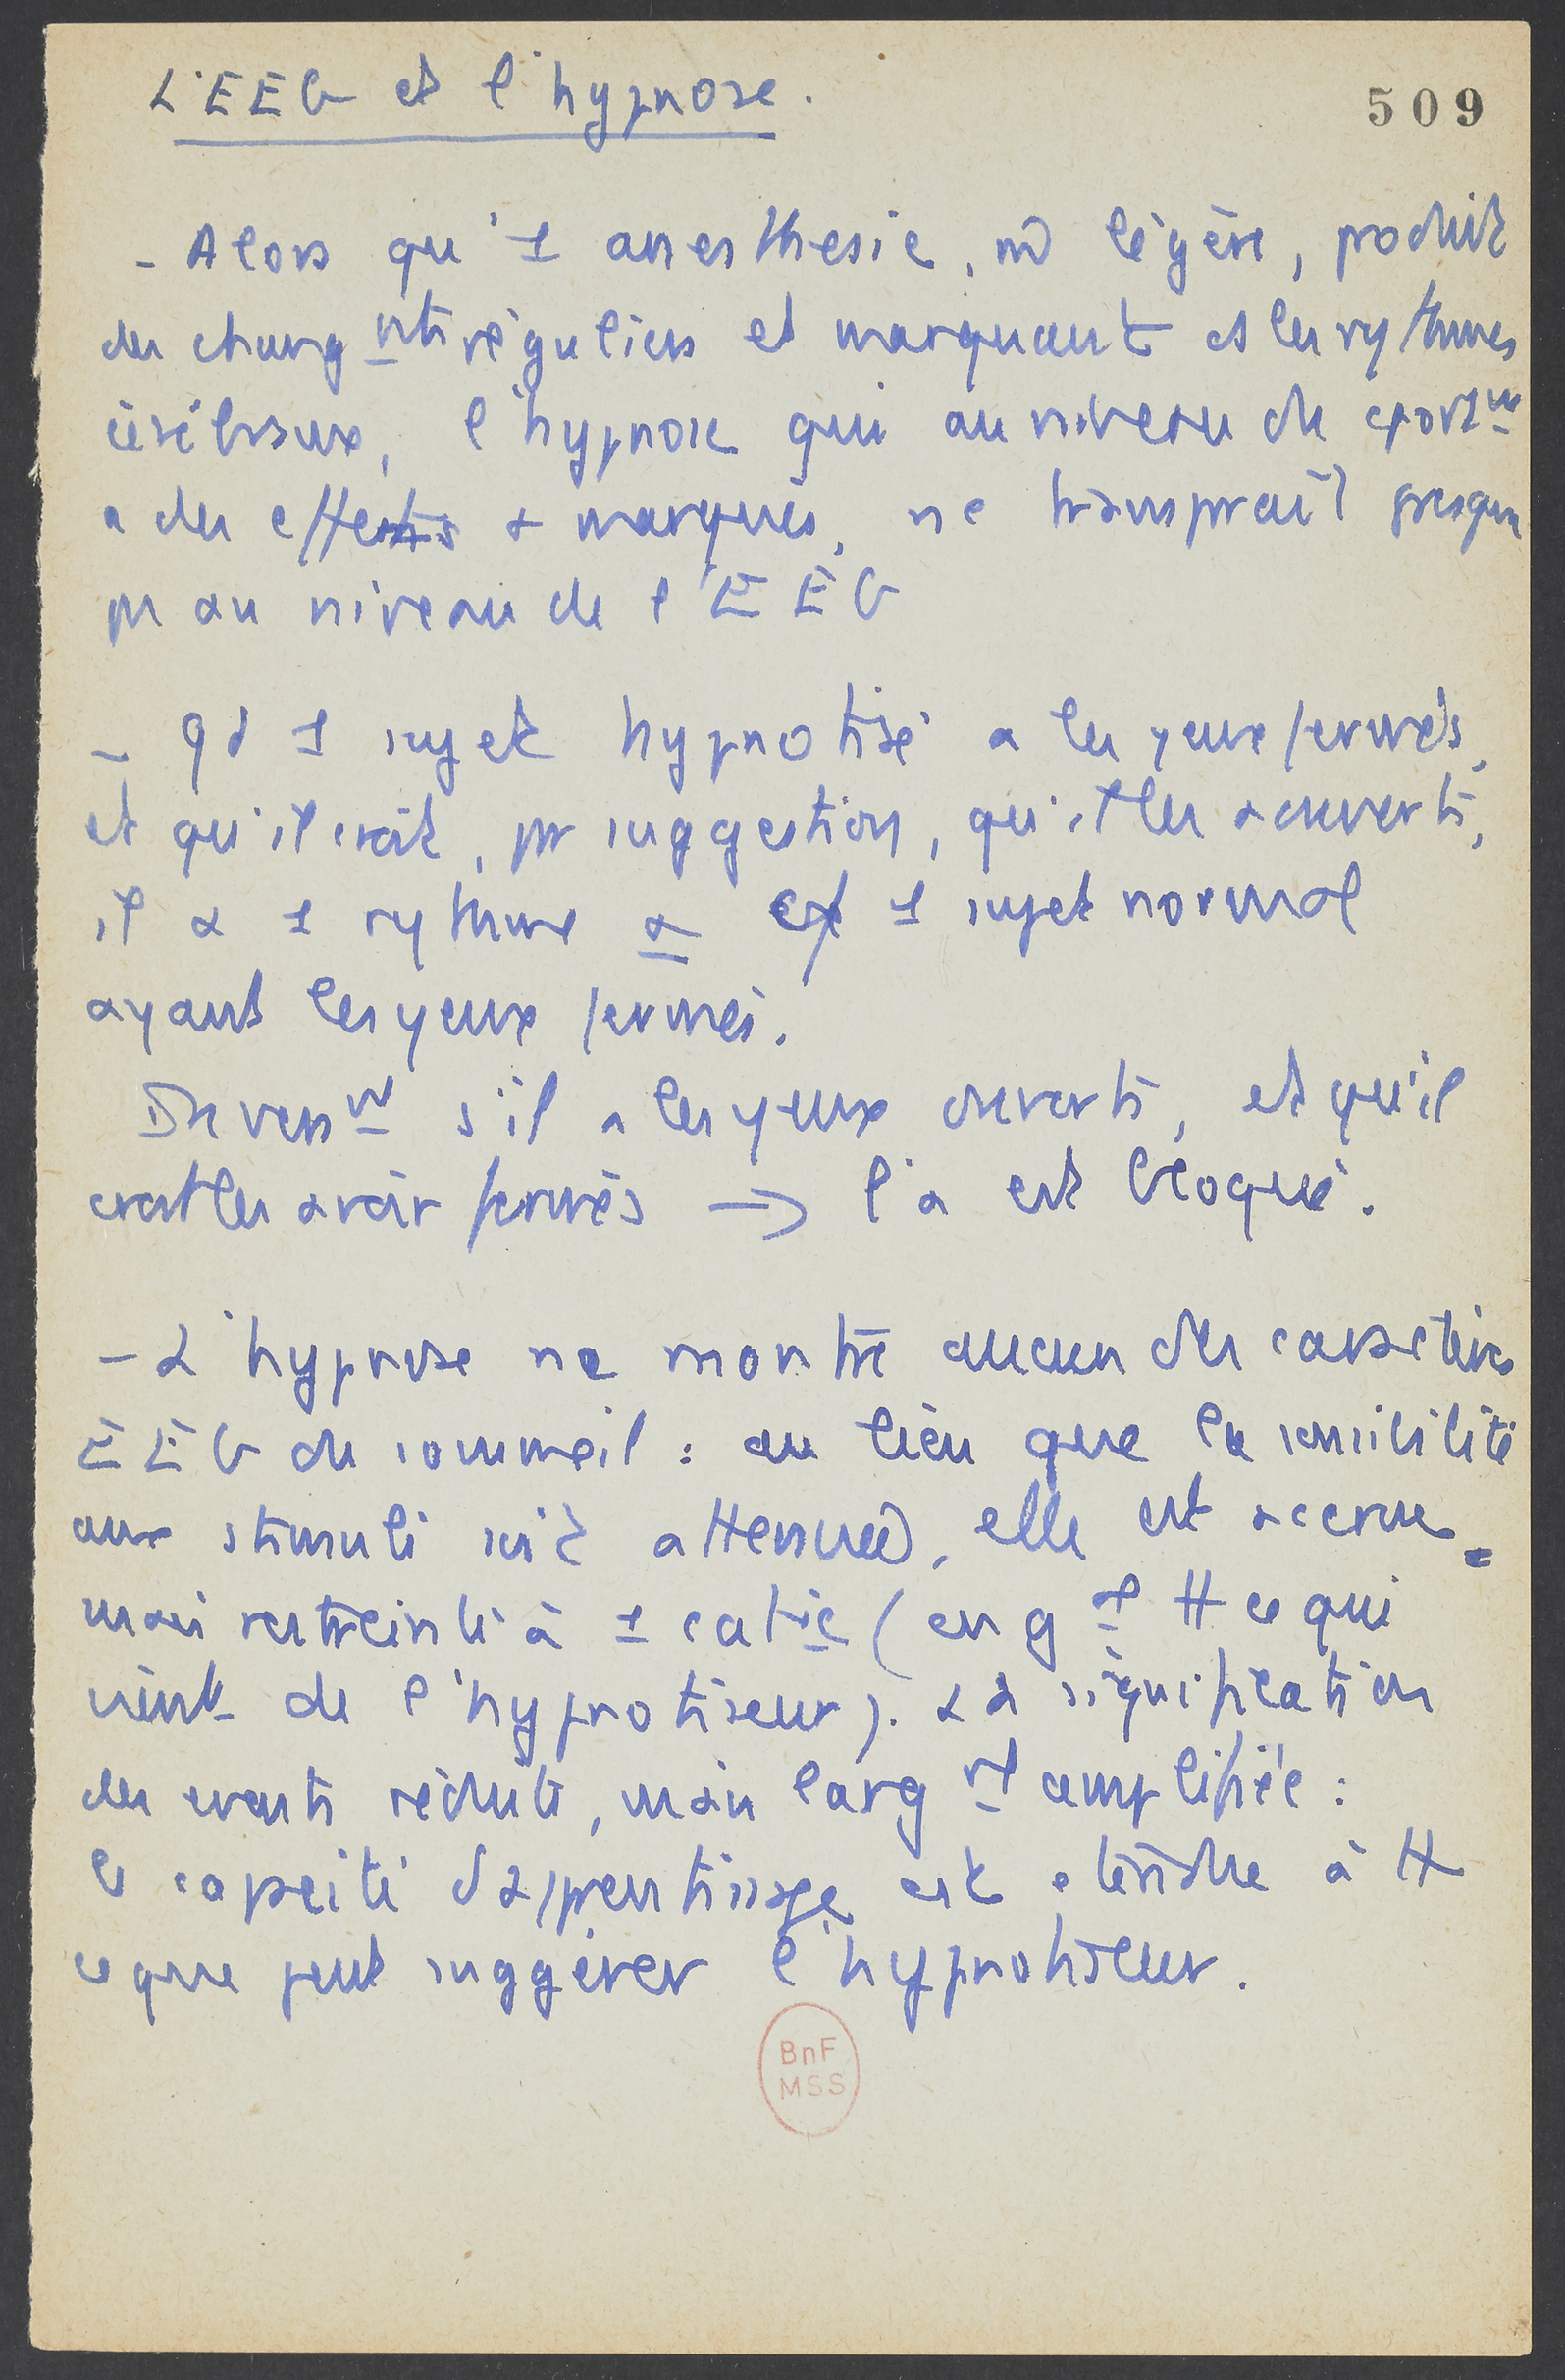 L'EEG et l'hypnose.
509
- Alors qu'1 anesthesie, m̂ légère, produit
des changnts réguliers et marquant ds les rythmes
cérébraux, l'hypnose qui au niveau du cportnt
a des effets si marqués, ne transpraît presque
pas au niveau de l'EEG
- Qd 1 sujet hypnotisé a les yeux fermés,
et qu'il croit, par suggestion, qu'il les a ouverts,
il a 1 rythme α cf 1 sujet normal
ayant les yeux fermés.
Inversnt s'il a les yeux ouverts, et qu'il
croit les avoir fermés → l'α est bloqué.
- L'hypnose ne montre aucun des caractères
EEG du sommeil : au lieu que la sensibilité
aux stimuli soit attenuée, elle est accrue
mais restreinte à 1 catie (en gl tt ce qui
vient de l'hypnotiseur). La signification
des events réduite, mais largnt amplifiée :
la capacité d'apprentissage est etendue à tt
ce que peut suggérer l'hypnotiseur.
BnF
MSS